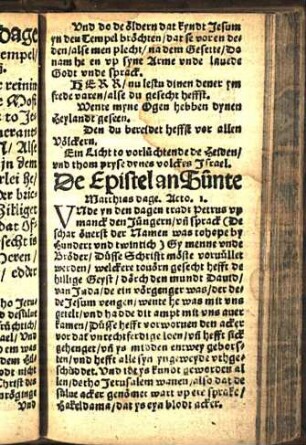 dage
Tempel/
Vnd do de öldern dat kyndt Jesum
yn den Tempel bröchten/dat se vor en de-
den/alse men plecht/na dem Gesette/Do
nam he en vp syne Arme vnde lauede
Godt vnde sprack.
HERR/nu lestu dinen dener ym
frede varen/alse du gesecht heffst.
Wente myne Ogen hebben dynen
Heylandt geseen.
Den du beredet heffst vor allen
Völckern.
Ein Licht to vorlüchtende de Heiden/
vnd thom pryse dynes volckes Israel.
De Epistel an Sünte
Matthias dage. Acto. 1.
VNde yn den dagen tradt Petrus vp
manck den Jüngern/vñ sprack (De
schar öuerst der Namen was tohope by
hundert vnd twintich) Gy menne vnde
Bröder/Düsse Schrifft möste voruüllet
werden/welckere touörn gesecht hefft de
hillige Geyst/dörch den mundt Dauid/
van Juda/de ein vörgenger was/der de-
de Jesum vengen/wente he was mit vns
getelt/vnd hadde dit ampt mit vns auer
kamen/Düsse hefft vorworuen den acker
vor dat vnrechtferdige loen/vñ hefft sick
gehenget/vñ ys midden entwey gebor-
sten/vnd hefft alle syn yngeweyde vthge-
schüddet. Vnd idt ys kundt geworden al-
len/de tho Jerusalem wanen/also dat de
sülue acker genömet wart vp ere sprake/
Hakeldama/dat ys eyn blodt acker.